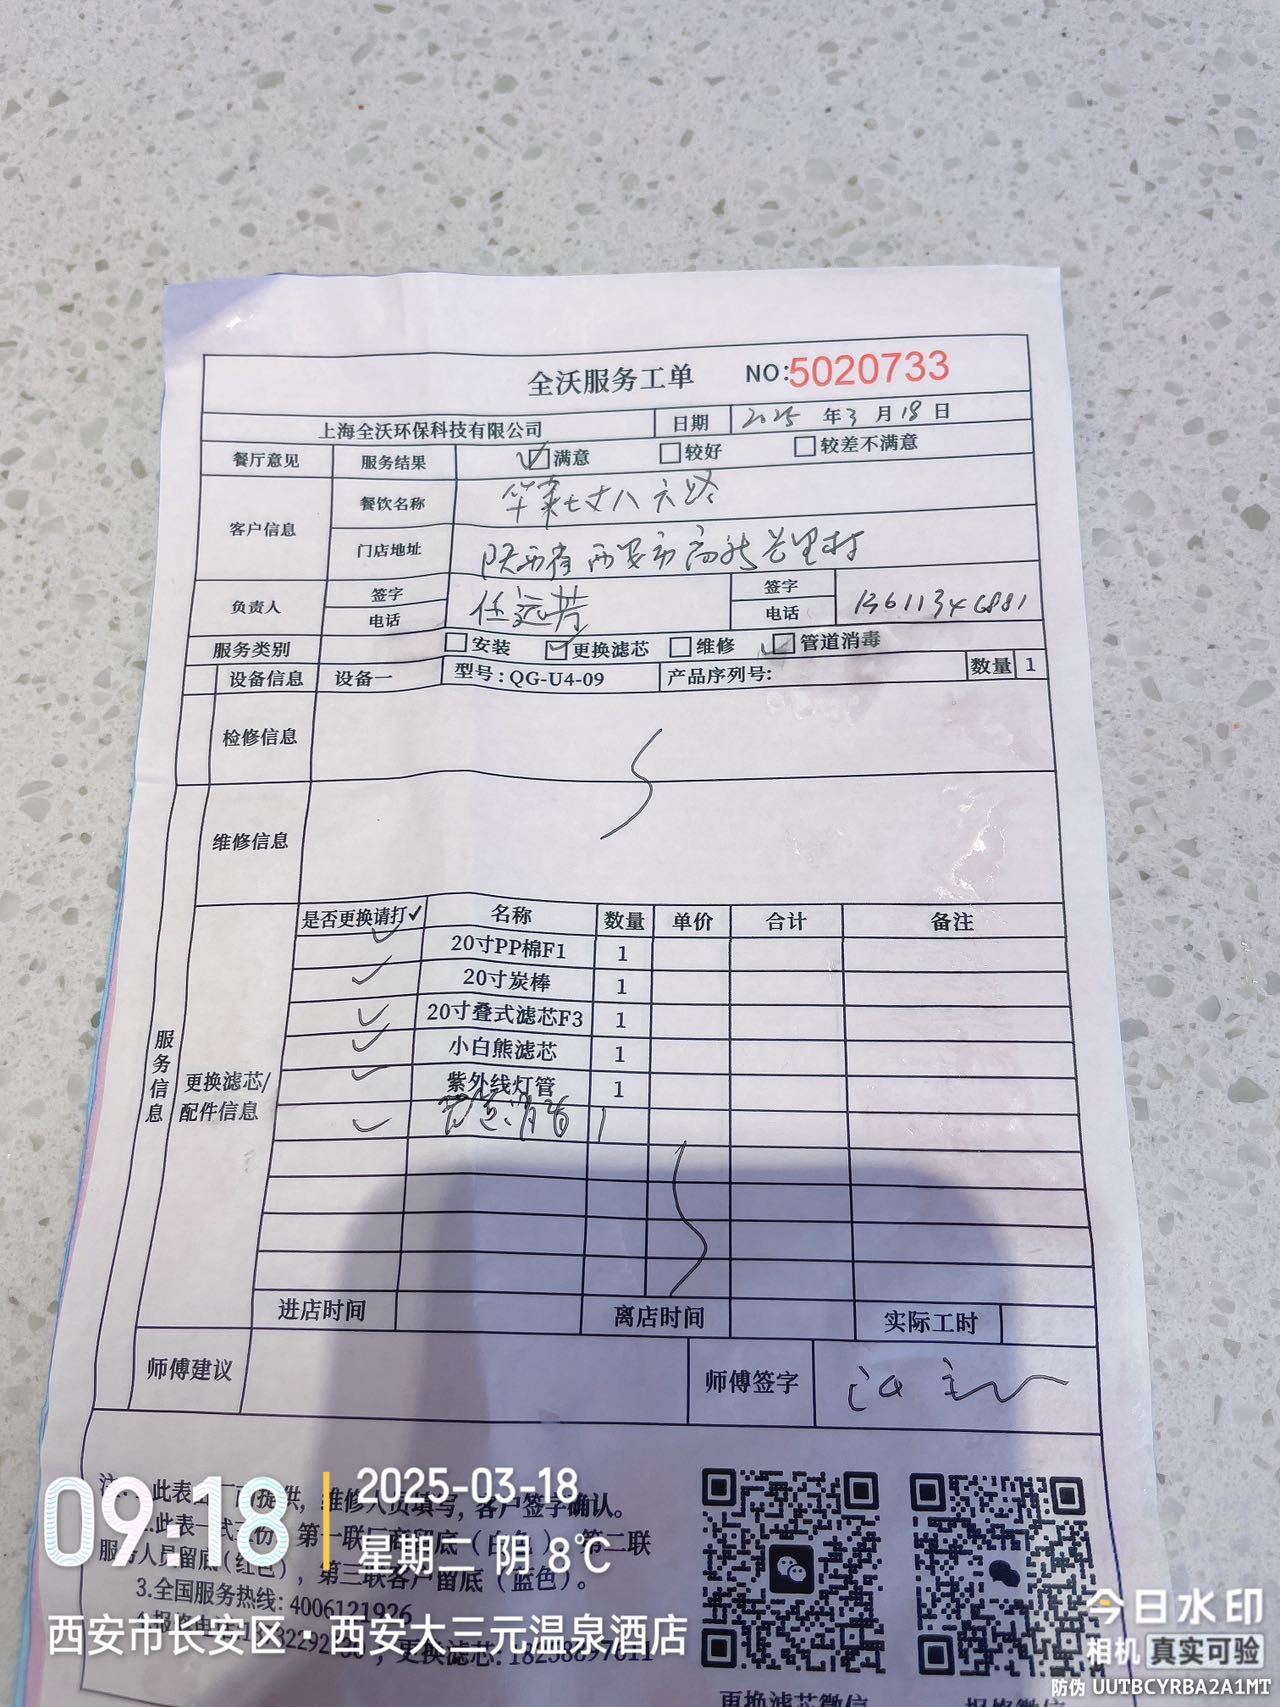 全沃服务工单 NO:5020733
上海全沃环保科技有限公司 日期 2025 年 3 月 18 日
餐厅意见 服务结果 满意 较好 较差不满意
客户信息 餐饮名称 华莱士丈八六路
门店地址 陕西省西安市高新
负责人 签字 电话 任远芳 签字 电话 13611346881
服务类别 安装 更换滤芯 维修 管道消毒
设备信息 设备一 型号:QG-U4-09 产品序列号: 数量 1
检修信息
维修信息
服务信息
更换滤芯/
配件信息
是否更换请打✓ 名称 数量 单价 合计 备注
✓ 20寸PP棉F1 1
✓ 20寸炭棒 1
✓ 20寸叠式滤芯F3 1
✓ 小白熊滤芯 1
✓ 紫外线灯管 1
✓ 管道消毒 1
进店时间 离店时间 实际工时
师傅建议 师傅签字
注: 此表 提供, 维修人员填写, 客户签字确认。
此表一式 份, 第一联厂商留底(白色), 第二联
服务人员留底(红色), 第三联客户留底(蓝色)。
3.全国服务热线: 4006121926
更换滤芯: 18258897611
更换滤芯微信 报修微信
09:18
2025-03-18
星期二 阴 8°C
西安市长安区·西安大三元温泉酒店
今日水印
相机 真实可验
防伪 UUTBCYRBA2A1MT